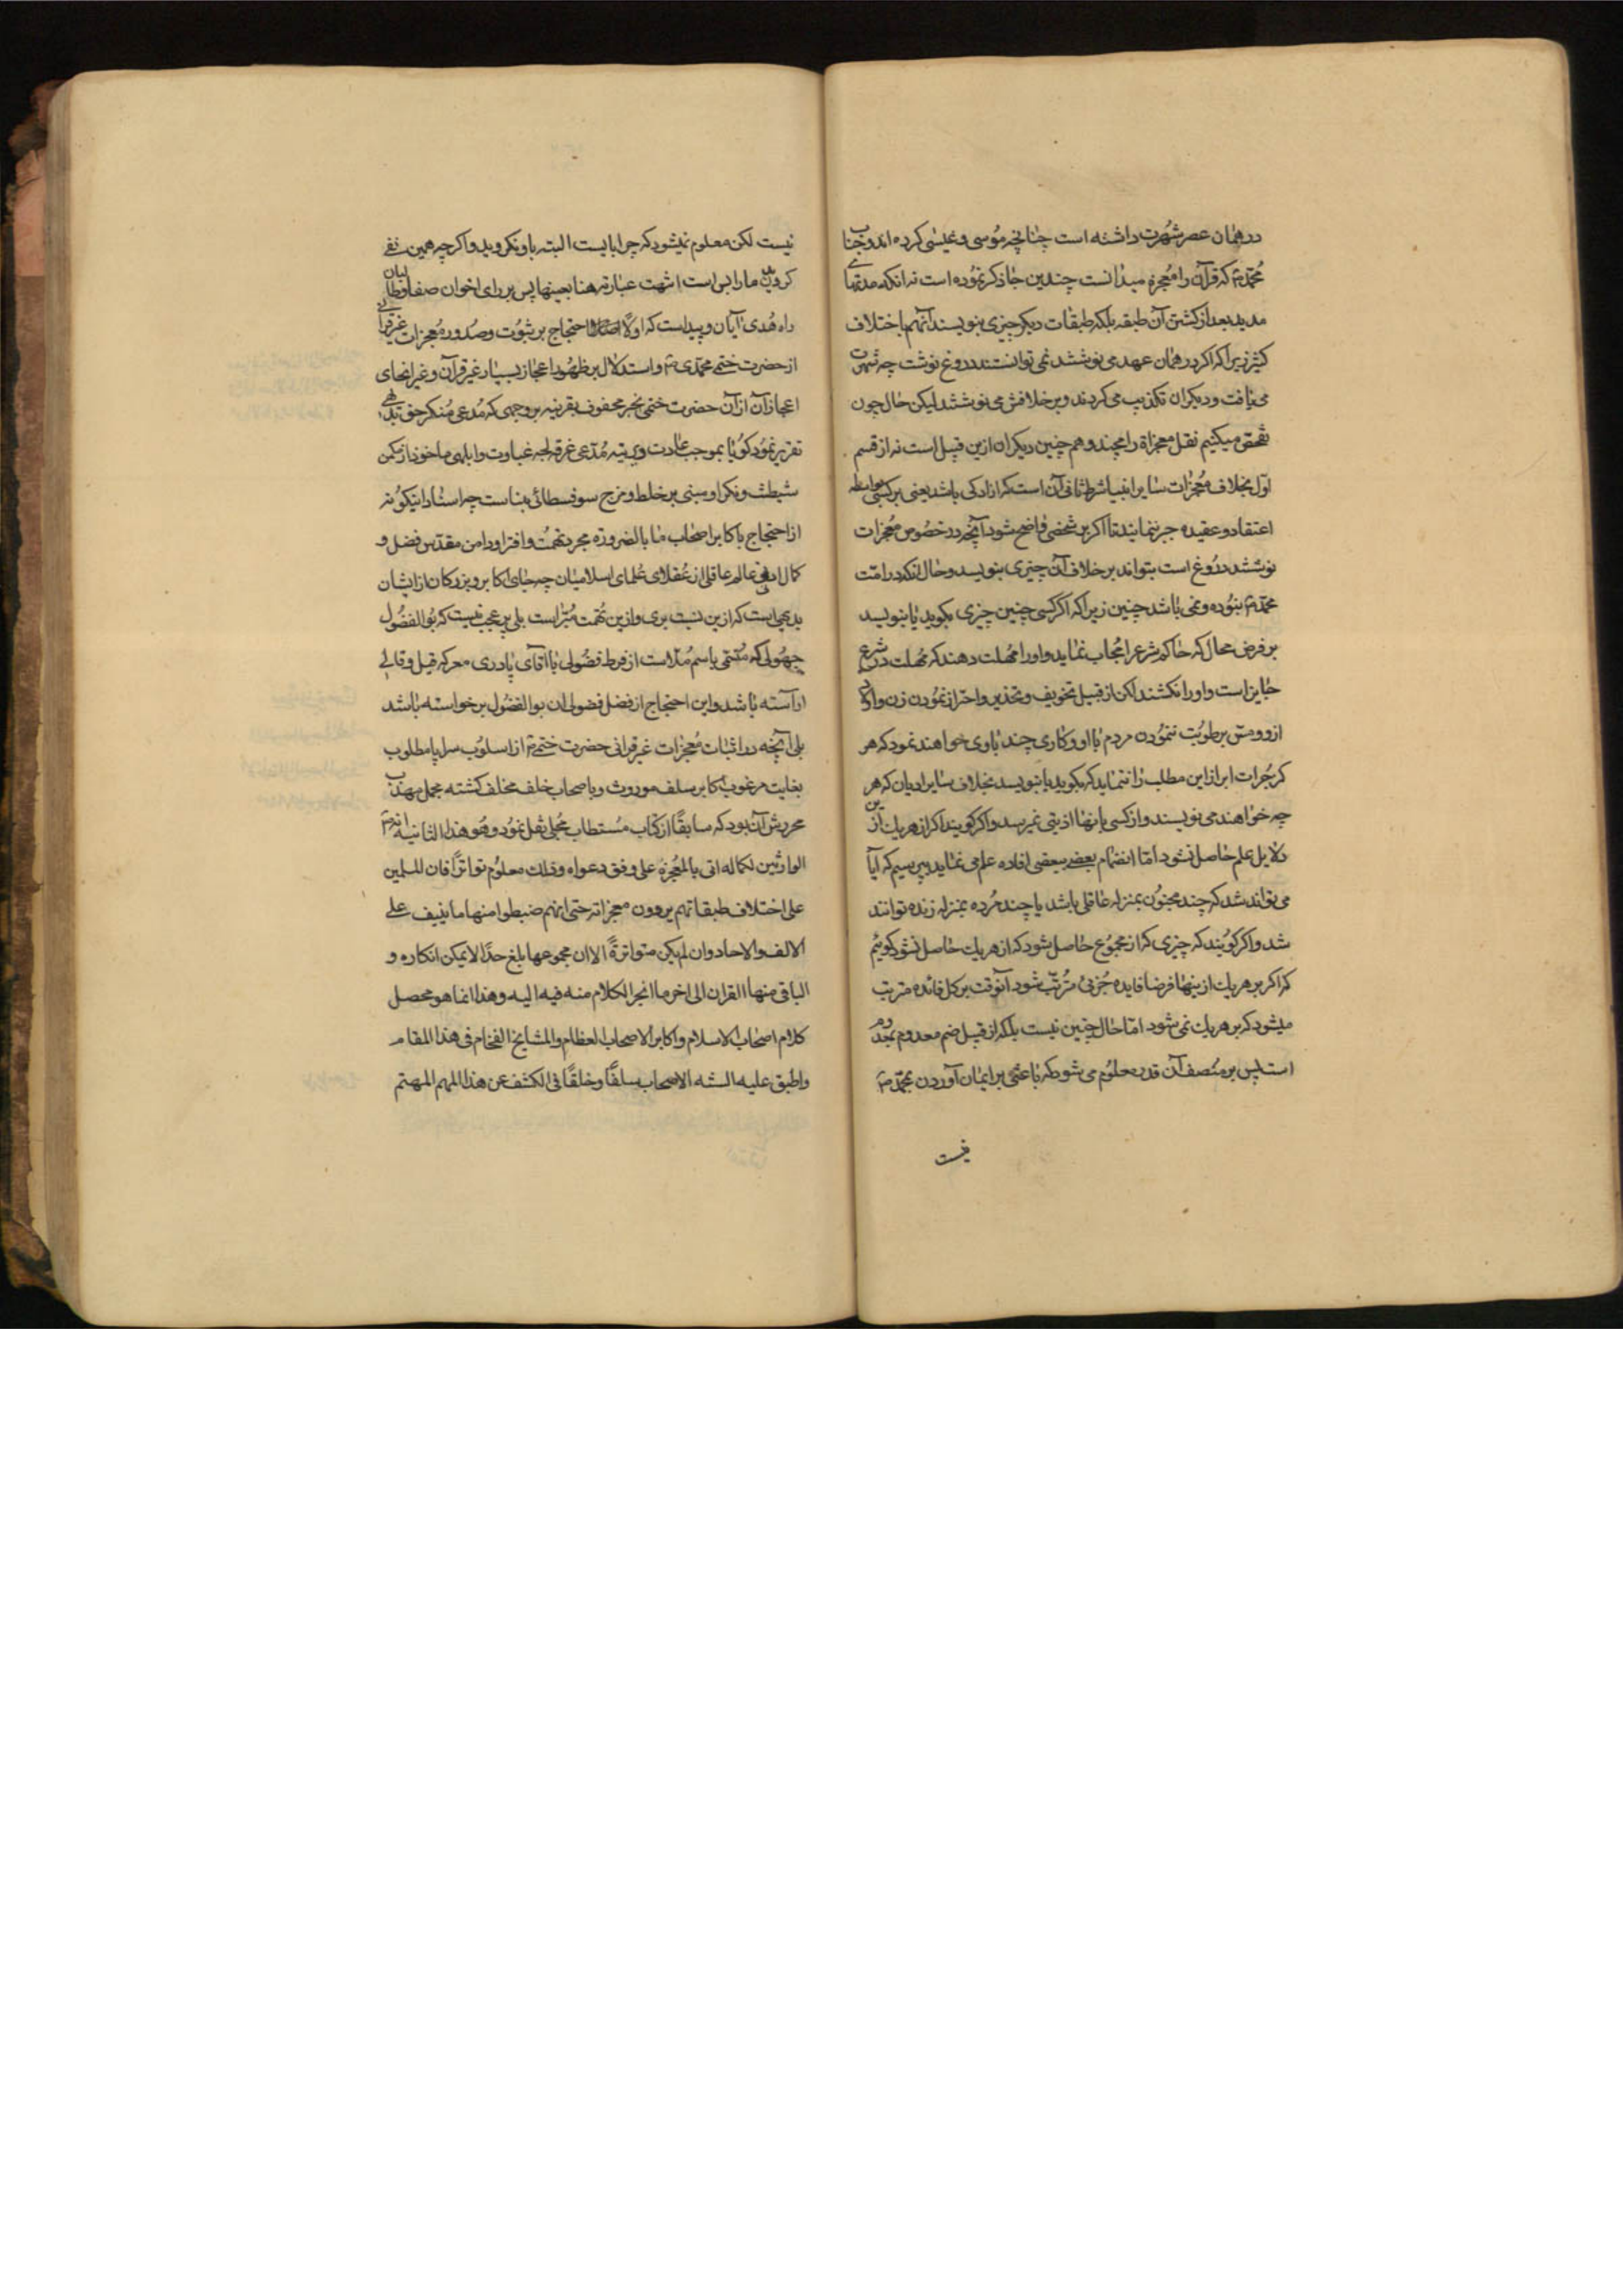 در همان عصر شهرت داشته است چنانچه موسی و عیسی کرده اند و جناب
محمد ص که قرآن را معجزه میدانست چندین جا ذکر نموده است نه انکه مدتهای
مدید بعد از کشتن آن طبقه بلکه طبقات دیگر چیزی بنویسند آنهم باختلاف
کثیر زیرا که اکر در همان عهد می نوشتند نمی توانستند دروغ نوشت چه شهرت
می یافت و دیکران تکذیب می کردند و بر خلافش می نوشتند لیکن حال چون
تحقیق میکنیم نقل معجزاة را مجند و هم چنین دیکران از این قبیل است نه از قسم
اول بخلاف معجزات سایر انبیا شرط ثانی آن است که ازادکی باشد یعنی بر کسی بواسطه
اعتقاد و عقیده جبر ننمایند تا اکر بر شخصی واضح شود آنچه در خصوص معجزات
نوشتند دروغ است بتواند بر خلاف آن چیزی بنویسد و حال انکه در امت
محمد ص نبوده و نمی باشد چنین زیرا که اکر کسی چنین چیزی بکوید یا بنویسد
بر فرض محال که حاکم شرع را مجاب نماید و او را مهلت دهند که مهلت در شرع
جایز است و او را نکشند لکن از قبیل تخویف و تحذیر و احتراز نمودن زن و اولاد
از او و مس برطوبت ننمودن مردم با او و کاری چند باوی خواهند نمود که هر
کز جرات ابراز این مطلب را ننماید که بکوید یا بنویسد بخلاف سایر ادیان که هر
چه خواهند می نویسند و از کسی بانها اذیتی نمیرسد و اکر کویند اکر از هر یک از این
دلایل علم حاصل نشود اما انضمام بعضی ببعضی افاده علم می نماید بپرسیم که آیا
می تواند شد که چند مجنون بمنزله عاقلی باشد یا چند مرده بمنزله زنده توانند
شد و اکر کویند که چیزی که از مجموع حاصل شود که از هر یک حاصل نشود کوییم
که اکر بر هر یک از اینها فرضا فایده جزئی مترتب شود آنوقت بر کل فائده مترتب
میشود که بر هر یک نمی شود اما حال چنین نیست بلکه از قبیل ضم معدوم بمعدوم
است پس بر منصف آن قدر معلوم می شود که باعثی بر ایمان آوردن بمحمد ص
نیست
نیست لکن معلوم نمیشود که چرا بایست البته باو نکروید و اکر چه همین نفی
کرویدن ما را بس است انتهت عبارته هنا بعینها پس بر رای اخوان صفا و طالبان
راه هدی آیان و پیداست که اولا اصلا احتجاج بر ثبوت و صدور معجزات غیر قرآنی
از حضرت ختمی محمدی ص و استدلال بر ظهور اعجاز بسیار غیر قرآن و غیر انحای
اعجاز آن از آن حضرت ختمی بخبر محفوف بقرینه بر وجهی که مدعی منکر حق بدیهی
تقریر نمود کویا بموجب عادت و دیته مدعی غرقه لجه غباوت و ابلهی ماخوذ از مکمن
شیطنت و نکرا و مبنی بر خلط و مزج سوفسطائی بناست چه اسناد اینکونه
از احتجاج باکابر اصحاب ما بالضروره مجرد تهمت و افترا و دامن مقدس فضل و
کمال ادنی عالم عاقلی از عقلای علمای اسلامیان چه جای اکابر و بزرکان از ایشان
بدیهی است که ازین نسبت بری و ازین تهمت مبراست بلی پر عجب نیست که بو الفضول
جهولی که متسمی باسم ملاست از فرط فضولی با اقای پادری معرکه قیل و قالی
اراسته باشد و این احتجاج از فضل فضولی ان بو الفضول بر خواسته باشد
بلی آنچه در اثبات معجزات غیر قرانی حضرت ختمی ص از اسلوب سراپا مطلوب
بغایت مرغوب اکابر سلف موروث و باصحاب خلف مخلف کشته مجمل مهذب
محررش آن بود که سابقا از کتاب مستطاب مجلی نقل نمود و هو هذا الثانیه انه ص
الوارثین لکماله اتی بالمعجزة علی وفق دعواه و ذلک معلوم تواترا فان للمسلمین
علی اختلاف طبقاتهم یروون معجزاته حتی انهم ضبطوا منها ما ینیف علی
الالف و الاحاد وان لم یکن متواترة الا ان مجموعها بلغ حدا لا یمکن انکاره و
الباقی منها القران الی اخر ما انجر الکلام منه فیه الیه و هذا انما هو محصل
کلام اصحاب الاسلام و اکابر الاصحاب العظام و المشایخ الفخام فی هذا المقام
و اطبق علیه السنه الاصحاب سلفا و خلفا فی الکشف عن هذا المهم المهتم